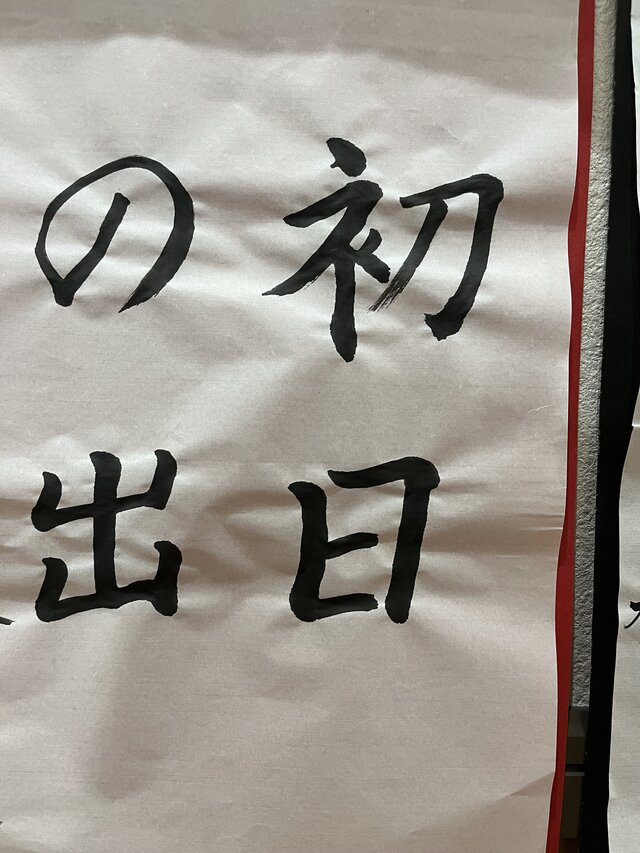 初日
の出